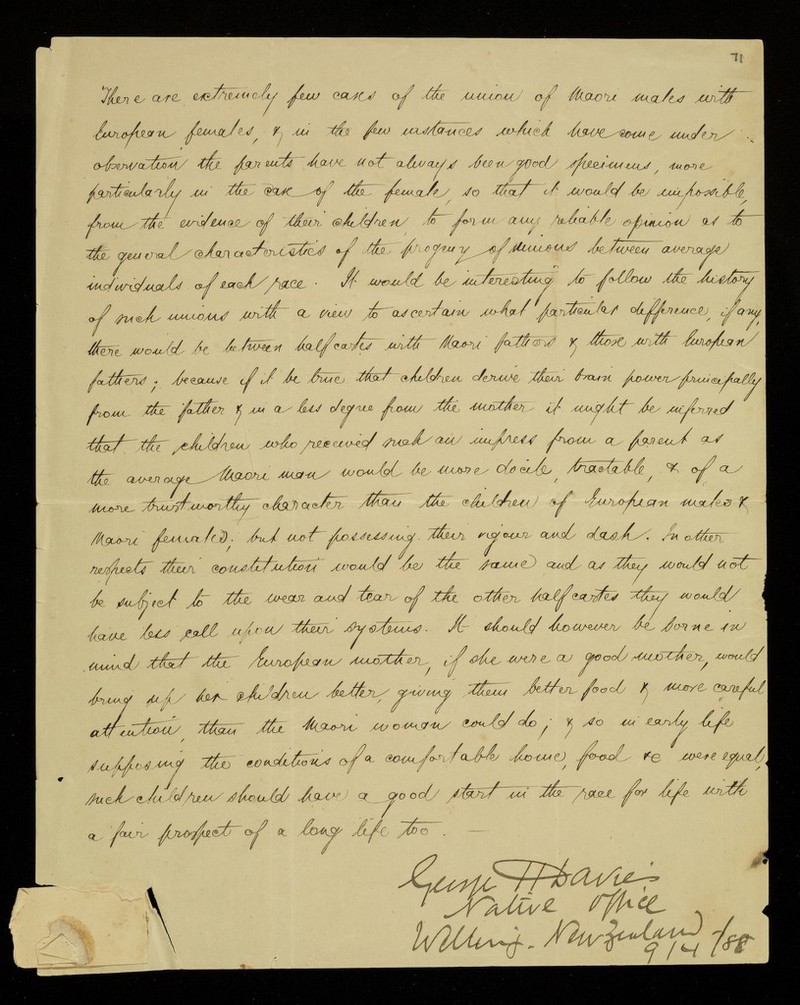 71
There are extremely few cases of the union of Maori males with
European females, & in the few instances which have come under
observation the parents have not always been good specimens, more
particularly in the case of the female, so that it would be impossible,
from the evidence of their children to form any reliable opinion as to
the general characteristics of the progeny of unions between average
individuals of each race. It would be interesting to follow the history
of such unions with a view to ascertain what particular difference, if any,
there would be between half castes with Maori fathers & those with European
fathers; because if it be true that children derive their brain power principally
from the father & in a less degree from the mother it might be inferred
that the children who received such an impress from a parent as
the average Maori man would be more docile, tractable, & of a
more trustworthy character than the children of European males &
Maori females; but not possessing their vigour and dash. In other
respects their constitution would be the same and as they would not
be subject to the wear and tear of the other half castes they would
have less call upon their systems. It should however be borne in
mind that the European mother, if she were a good mother, would
bring up her children better, giving them better food & more careful
attention, than the Maori woman could do; & so in early life
supposing the conditions of a comfortable home, food &c were equal,
such children should have a good start in the race for life with
a fair prospect of a long life too. —
George H Davies
Native Office
New Zealand
9/4/88